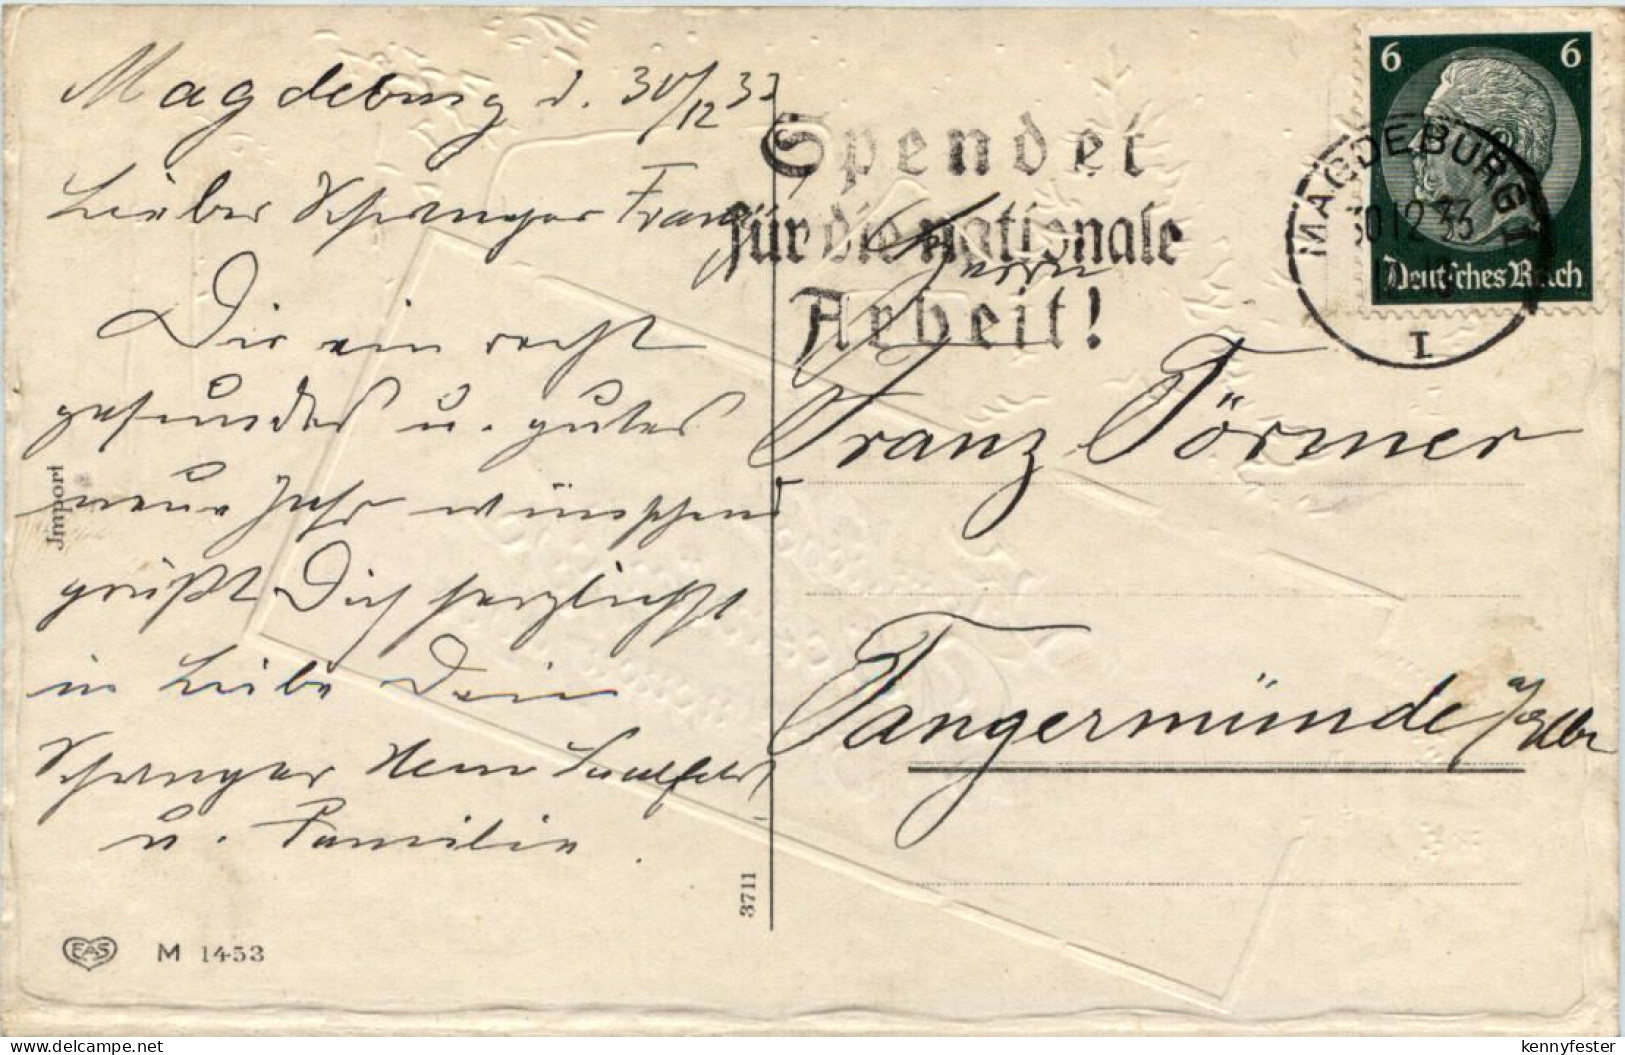 Magdeburg d. 30/12 33
Lieber Schwager Franz!
Dir ein recht
gesundes u. gutes
neue Jahr wünschend
grüßt Dich herzlichst
in Liebe Dein
Schwager
u. Familie.
Spendet
für die nationale
Arbeit!
Herrn
Franz Törmer
Tangermünde a/Elbe
6 6
Deutsches Reich
MAGDEBURG 1
30.12.33
I
Jmport
3711
EAS M 1453
kennyfester